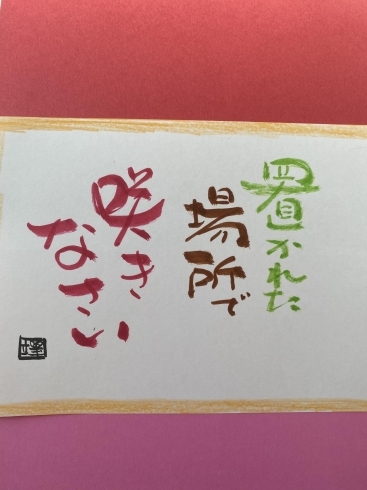 置かれた
場所で
咲き
なさい